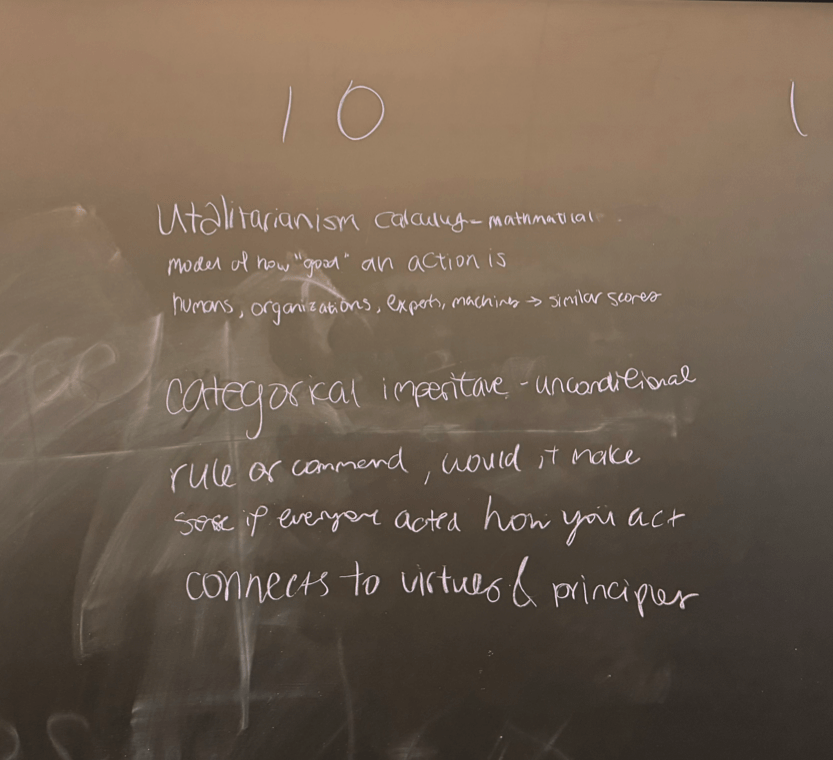 10
Utalitarianism calculus - mathmatical
model of how "good" an action is
humans, organizations, experts, machines → similar scores
categorical imperitave - unconditional
rule or command, would it make
sese if everyone acted how you act
connects to virtues & principles